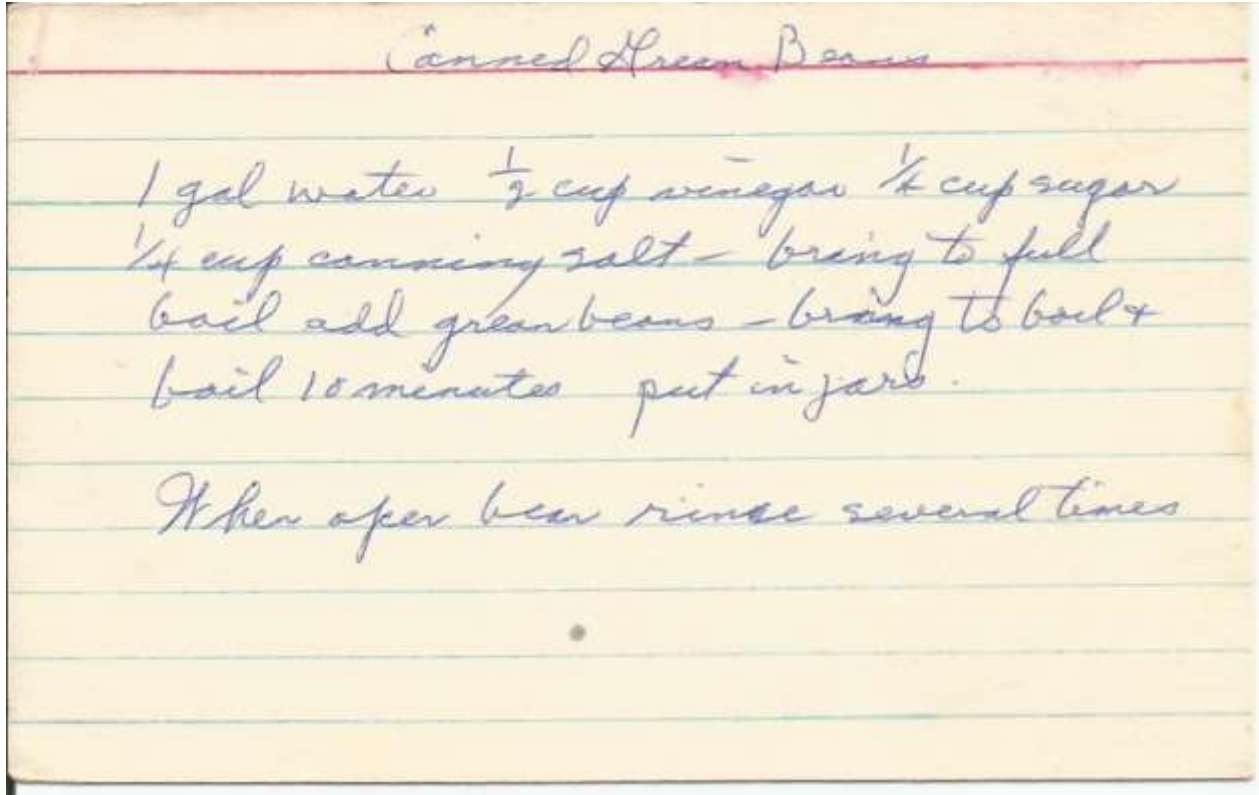 Canned Green Beans
1 gal water ½ cup vinegar ¼ cup sugar
¼ cup canning salt - bring to full
boil add green beans - bring to boil &
boil 10 minutes put in jars.
When open bean rinse several times